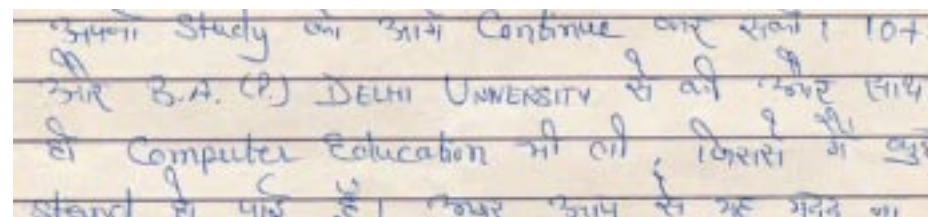 अपनी Study को आगे Continue कर सकी। 10+
और B.A. (P.) DELHI UNIVERSITY से की और साथ
ही Computer Education भी ली, जिससे मैं कुछ
stand हो पाई हूँ। अगर आप से यह मदद ना